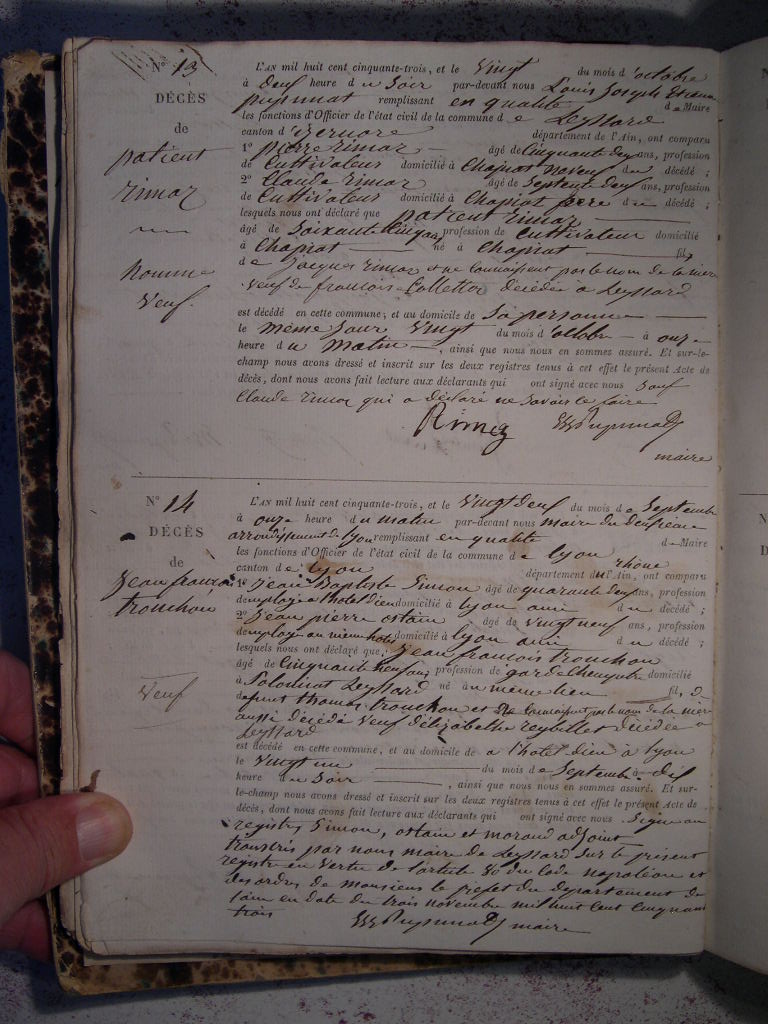 N° 13
DÉCÈS
de
patient
rimoz
homme
veuf.
L'AN mil huit cent cinquante-trois, et le Vingt du mois d'octobre
à deuf heure du Soir par-devant nous Louis Joseph Etienne
puysmat remplissant en qualité de Maire
les fonctions d'Officier de l'état civil de la commune de Leyssard
canton d'izernore département de l'Ain, ont comparu
1° pierre rimoz âgé de Cinquante deux ans, profession
de Cultivateur domicilié à Chapiat neveu du décédé ;
2° Claude rimoz âgé de Septente deuf ans, profession
de Cultivateur domicilié à Chapiat frère du décédé ;
lesquels nous ont déclaré que patient rimoz
âgé de Soixante Cinq ans profession de Cultivateur domicilié
à Chapiat né à Chapiat fils
de Jacques rimoz et ne connaissent pas le nom de la mère
veuf de francoise Collettaz décédée à Leyssard
est décédé en cette commune; et au domicile de Sa personne
le même Jour Vingt du mois d'octobre à onze
heure du matin, ainsi que nous nous en sommes assuré. Et sur-le-
champ nous avons dressé et inscrit sur les deux registres tenus à cet effet le présent Acte de
décès, dont nous avons fait lecture aux déclarants qui ont signé avec nous Sauf
Claude rimoz qui a déclaré ne Savoir le faire
Rimoz
maire
N° 14
DÉCÈS
de
Jean françois
trouchon
veuf
L'AN mil huit cent cinquante-trois, et le Vingt deuf du mois de Septembre
à onze heure du matin par-devant nous maire du deuxieme
arrondissement de lyon remplissant en qualité de Maire
les fonctions d'Officier de l'état civil de la commune de lyon
canton de lyon rhône département de l'Ain, ont comparu
1° Jean Baptiste Simon âgé de quarante deux ans, profession
d'employé a l'hotel dieu domicilié à lyon ami du décédé ;
2° Jean pierre ostain âgé de Vingt neuf ans, profession
d'employé au même hotel domicilié à lyon ami du décédé ;
lesquels nous ont déclaré que Jean francois trouchon
âgé de Cinquante neuf ans profession de garde champetre domicilié
à Solomiat Leyssard né au même lieu fils de
defunt thomas trouchon et ne connaissent pas le nom de la mere
aussi décédé veuf d'élizabethe reybillet décédée a
Leyssard
est décédé en cette commune, et au domicile de a l'hotel dieu à lyon
le Vingt un du mois de Septembre à dix
heure du Soir, ainsi que nous nous en sommes assuré. Et sur-
le-champ nous avons dressé et inscrit sur les deux registres tenus à cet effet le présent Acte de
décès, dont nous avons fait lecture aux déclarants qui ont signé avec nous Signé au
registre, Simon, ostain et morand adjoint
transcris par nous maire de Leyssard Sur le présent
registre en Vertu de l'article 80 du Code napoléon et
des ordres de monsieur le préfet du département de
l'ain en date du trois novembre mil huit cent cinquante
trois
maire